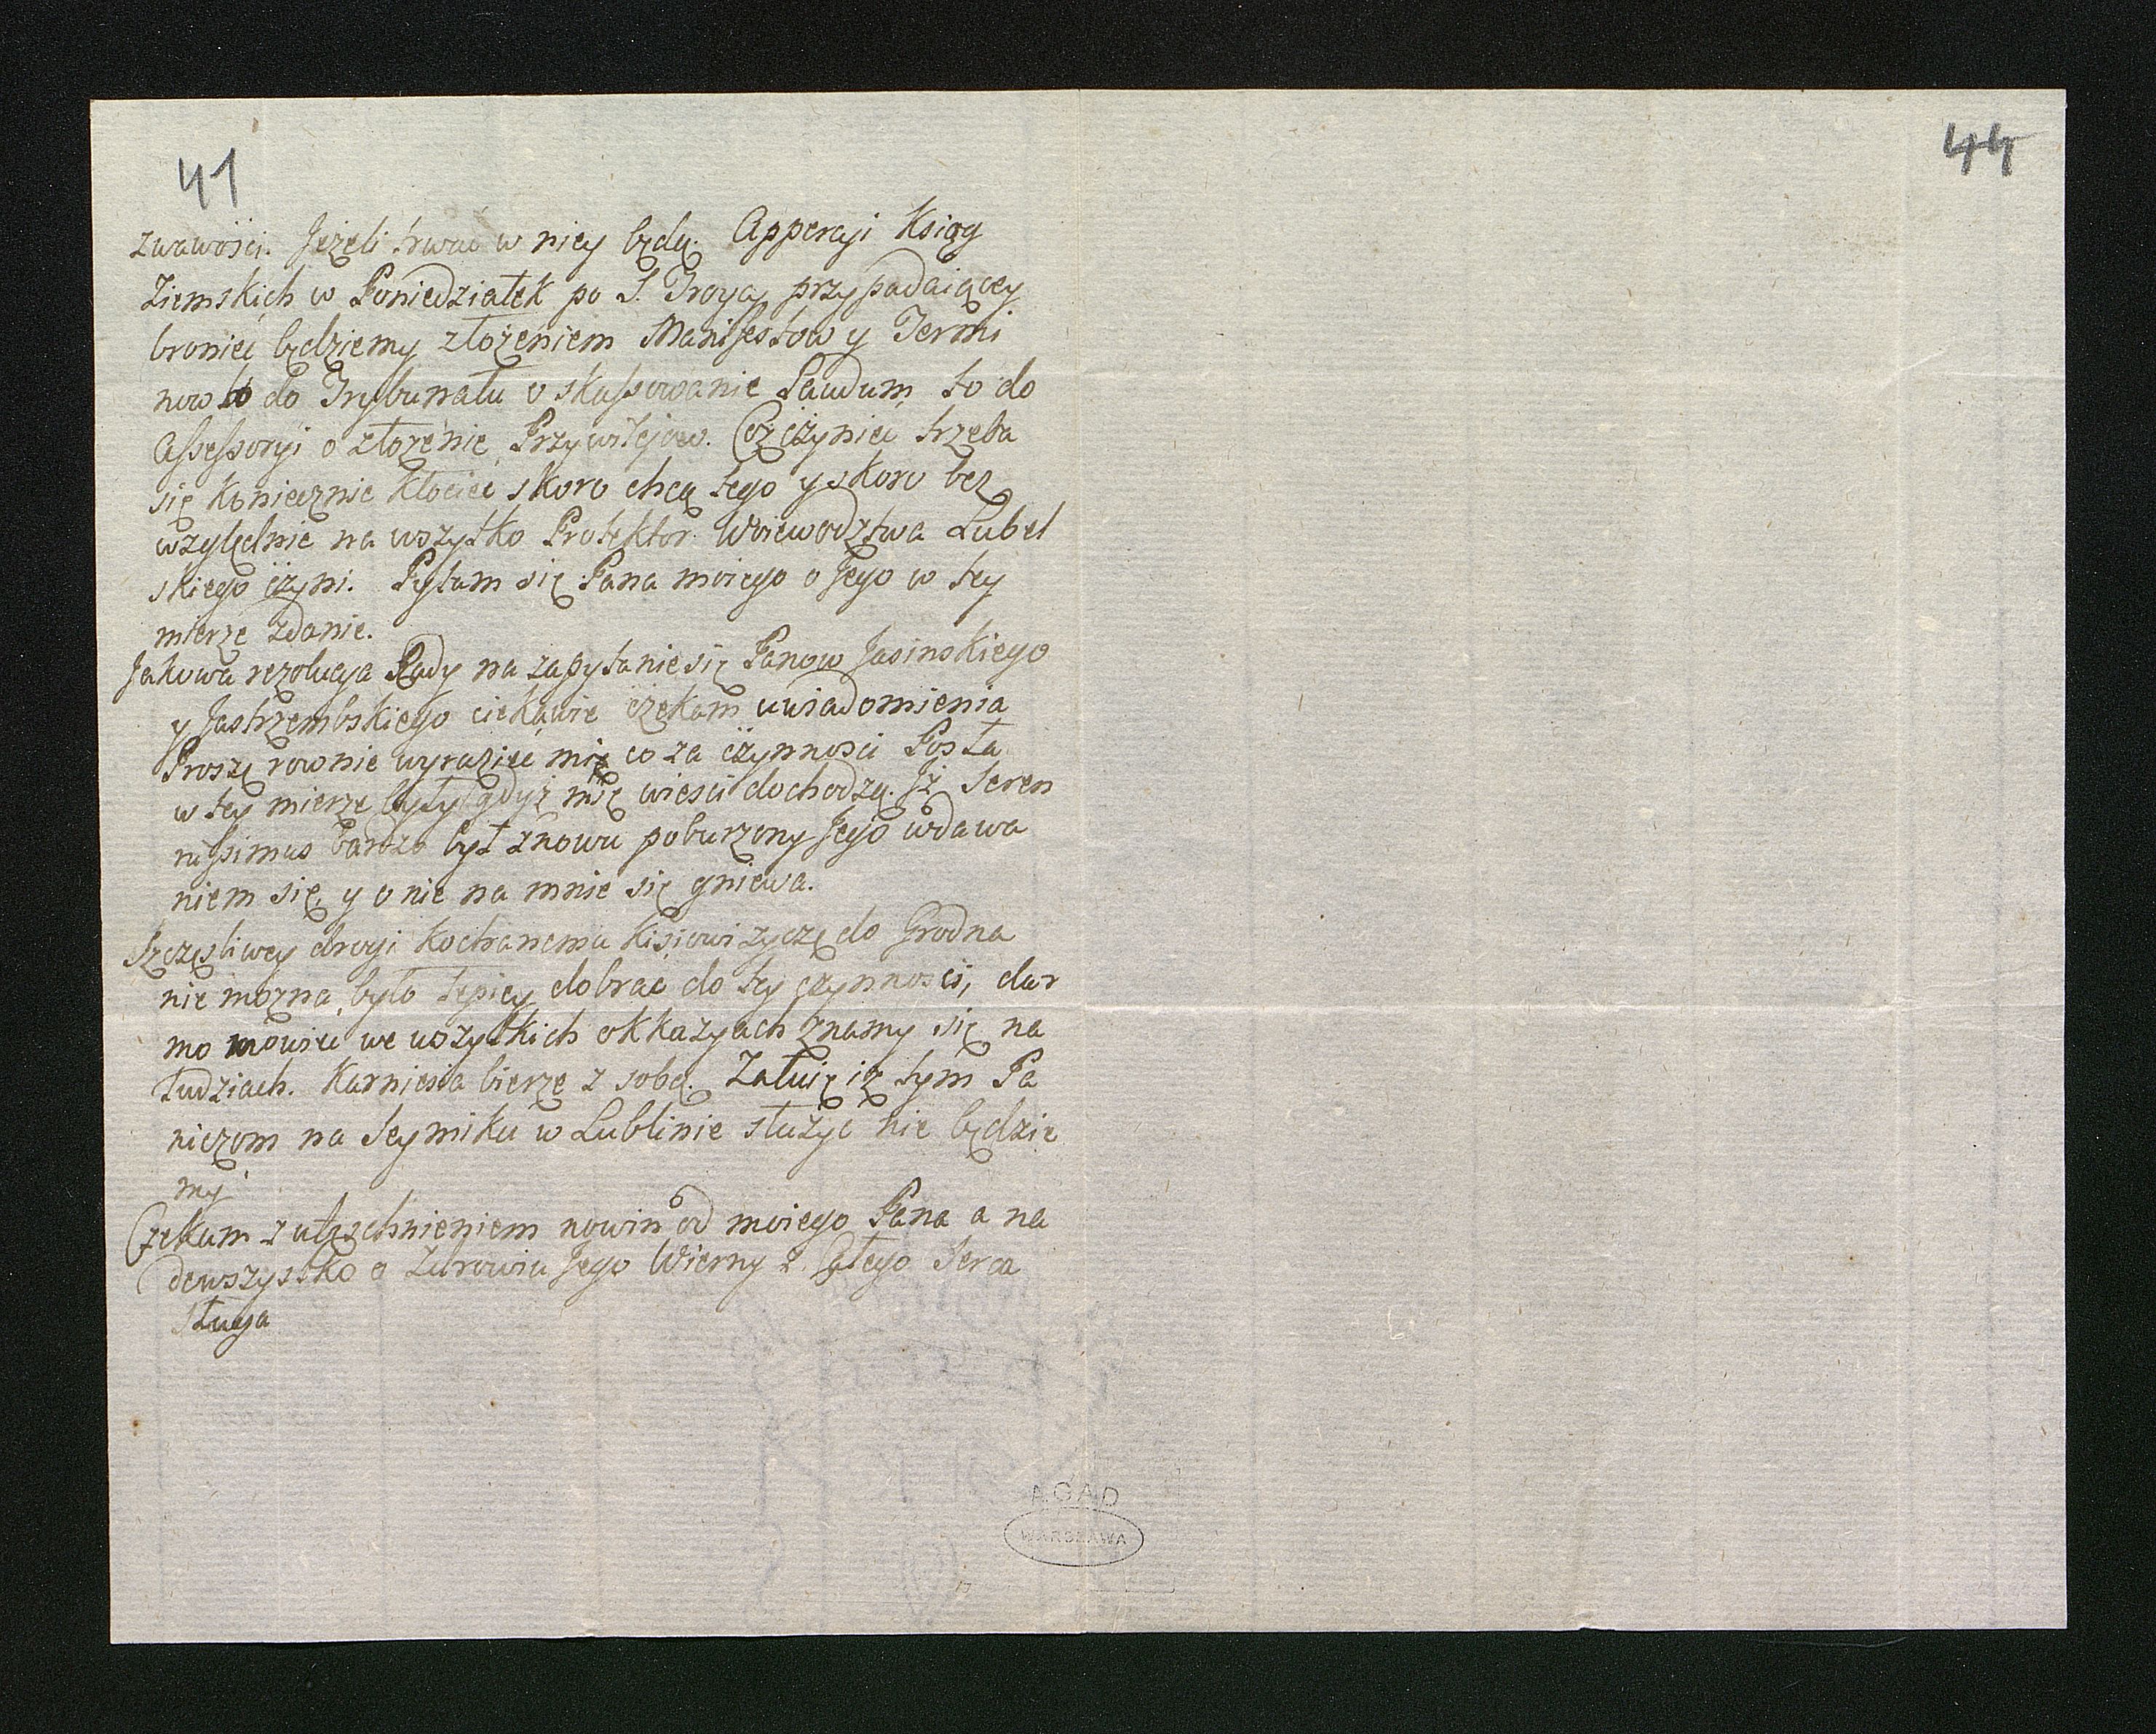 41
44
zwawości. Jeżeli trwać w niey będą. Apperayi Ksiąg
Ziemskich w Poniedziałek po S. Troycy przypadaiącey
bronieć będziemy złożeniem Manifestow y Termi
now to do Trybunału o skassowanie Laudum, to do
Assessoryi o złożenie Przywilejow. Coż czynieć trzeba
się koniecznie kłocieć skoro chcą tego y skoro bez
względnie na wszytko Protektor Woiewodztwa Lubel
skiego czyni. Pytam się Pana moiego o Jego w tey
mierze zdanie.
Jakowa rezolucya Rady na zapytanie się Panow Jasinskiego
y Jastrzembskiego ciekawie czekam uwiadomienia
Proszę rownie wyrazieć mię co za czynnosci Posła
w tey mierze były gdyż mię wiesci dochodzą. Iż Seren
nissimus bardzo był znowu poburzony Jego udawa
niem się, y o nie na mnie się gniewa.
Szczęsliwey drogi kochanemu Kisiowi życzę do Grodna
nie można było lepiey dobrać do tey czynnosci, dar
mo mowieć we wszytkich okkazyach znamy się na
ludziach. Karniesia bierze z sobą. Załuię iż tym Pa
niczom na Seymiku w Lublinie służyć nie będzie
my
Czekam z utęschnieniem nowin od moiego Pana a na
dewszystko o Zdrowiu Jego Wierny z Całego Serca
Sługa
AGAD
WARSZAWA